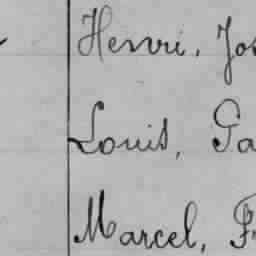 Henri, Jos
Louis, Ga
Marcel, Fr